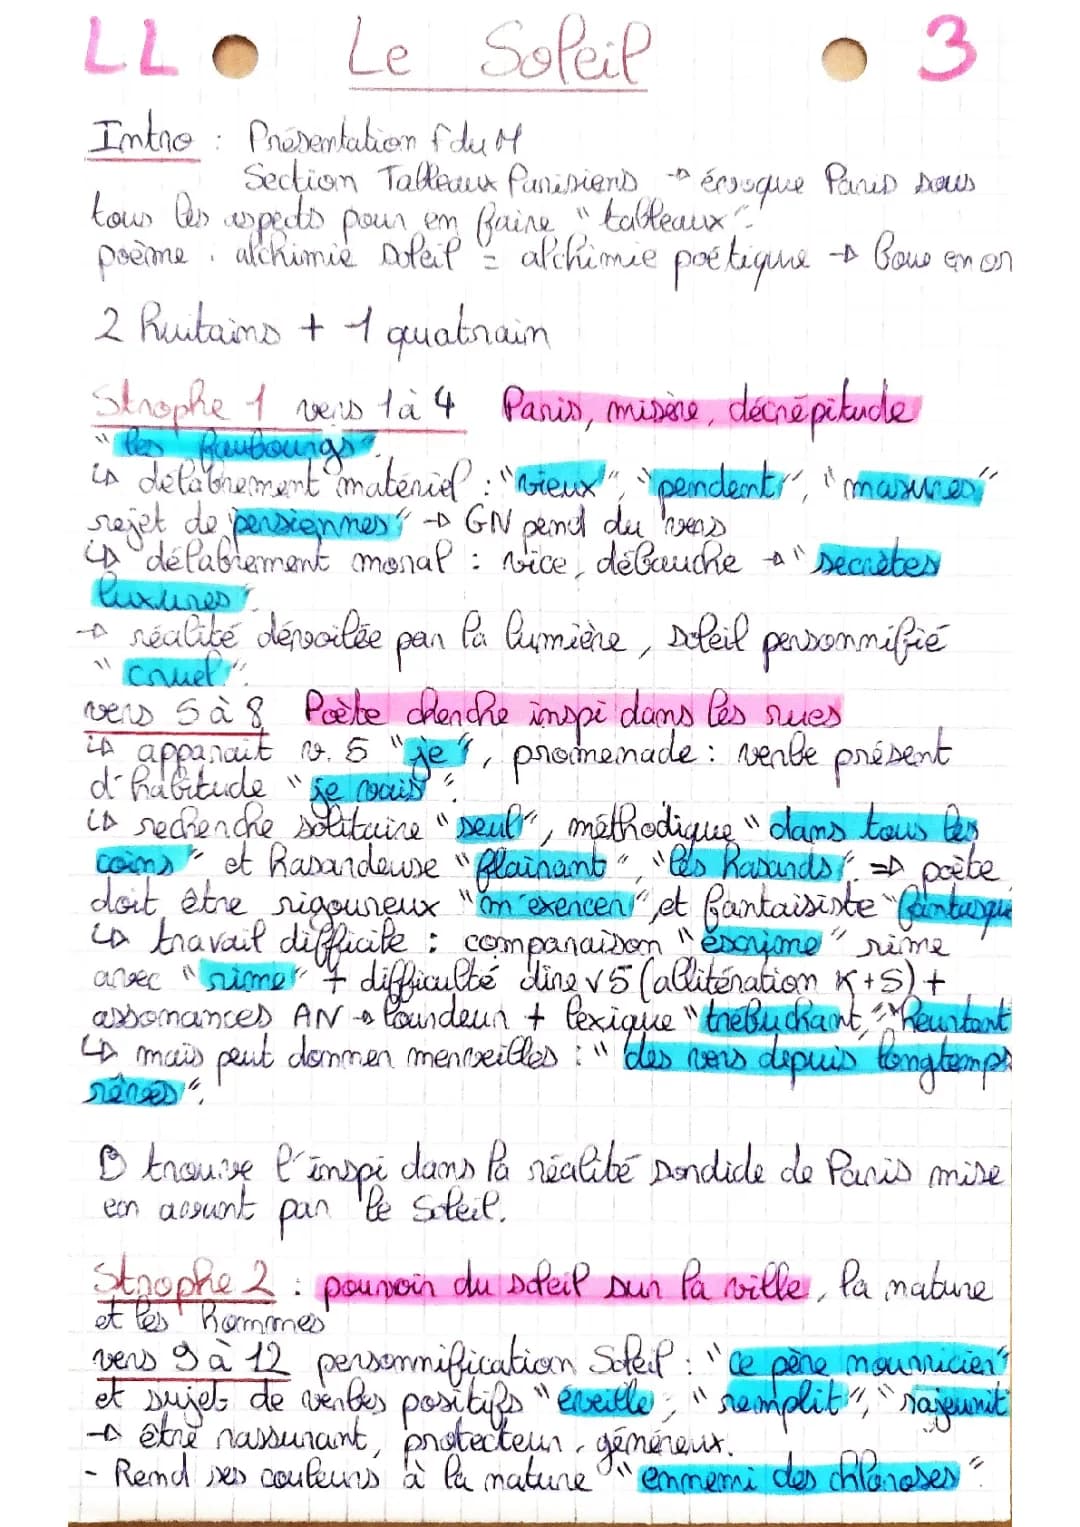 LL Le Soleil 3
Intro : Présentation f du M
Section Tableaux Parisiens → évoque Paris sous
tous les aspects pour en faire "tableaux".
poème : alchimie soleil = alchimie poétique → boue en or
2 huitains + 1 quatrain
Strophe 1 vers 1 à 4 Paris, misère, décrépitude
"les faubourgs".
↳ délabrement matériel : "vieux", "pendent", "masures"
rejet de "persiennes" → GN pend du vers
↳ délabrement moral : vice, débauche → "secrètes
luxures".
→ réalité dévoilée par la lumière, soleil personnifié
"cruel".
vers 5 à 8 Poète cherche inspi dans les rues
↳ apparait v. 5 "je", promenade : verbe présent
d'habitude "je vais".
↳ recherche solitaire "seul", méthodique "dans tous les
coins" et hasardeuse "flairant", "les hasards". ⇒ poète
doit être rigoureux "m'exercer", et fantaisiste "fantasque
↳ travail difficile : comparaison "escrime" rime
avec "rime" + difficulté dire v5 (allitération K+S) +
assonances AN → lourdeur + lexique "trébuchant", "Heurtant
↳ mais peut donner merveilles : "des vers depuis longtemps
rêvés".
B trouve l'inspi dans la réalité sordide de Paris mise
en avant par le Soleil.
Strophe 2 : pouvoir du soleil sur la ville, la nature
et les hommes
vers 9 à 12 personnification Soleil : "ce père nourricier"
et sujet de verbes positifs "éveille", "remplit", "rajeunit"
→ être rassurant, protecteur, généreux.
- Rend ses couleurs à la nature "ennemi des chloroses".